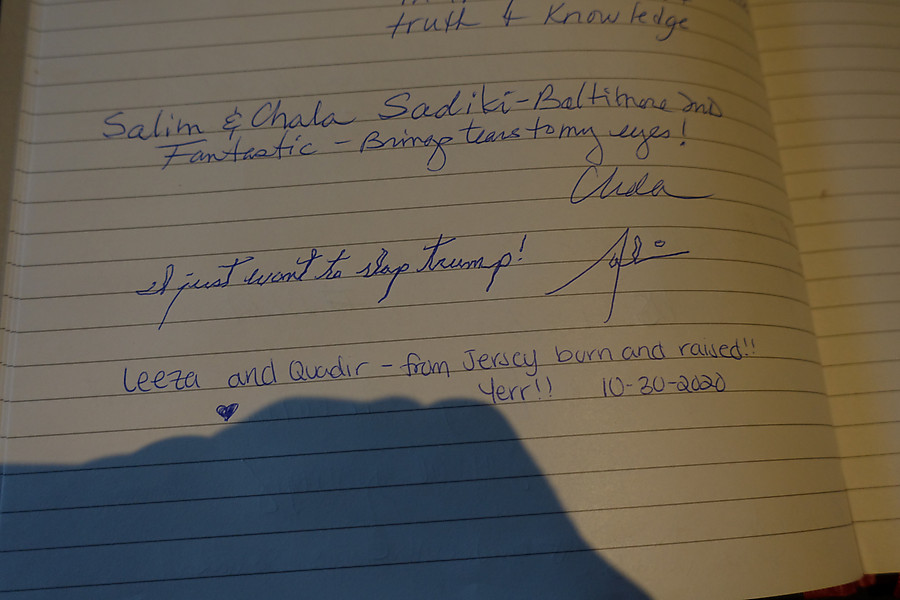 truth & Knowledge
Salim & Chala Sadiki-Baltimore MD
Fantastic - Brings tears to my eyes!
Chala
I just want to slap trump!
Leeza and Quadir - from Jersey born and raised!!
Yerr!! 10-30-2020